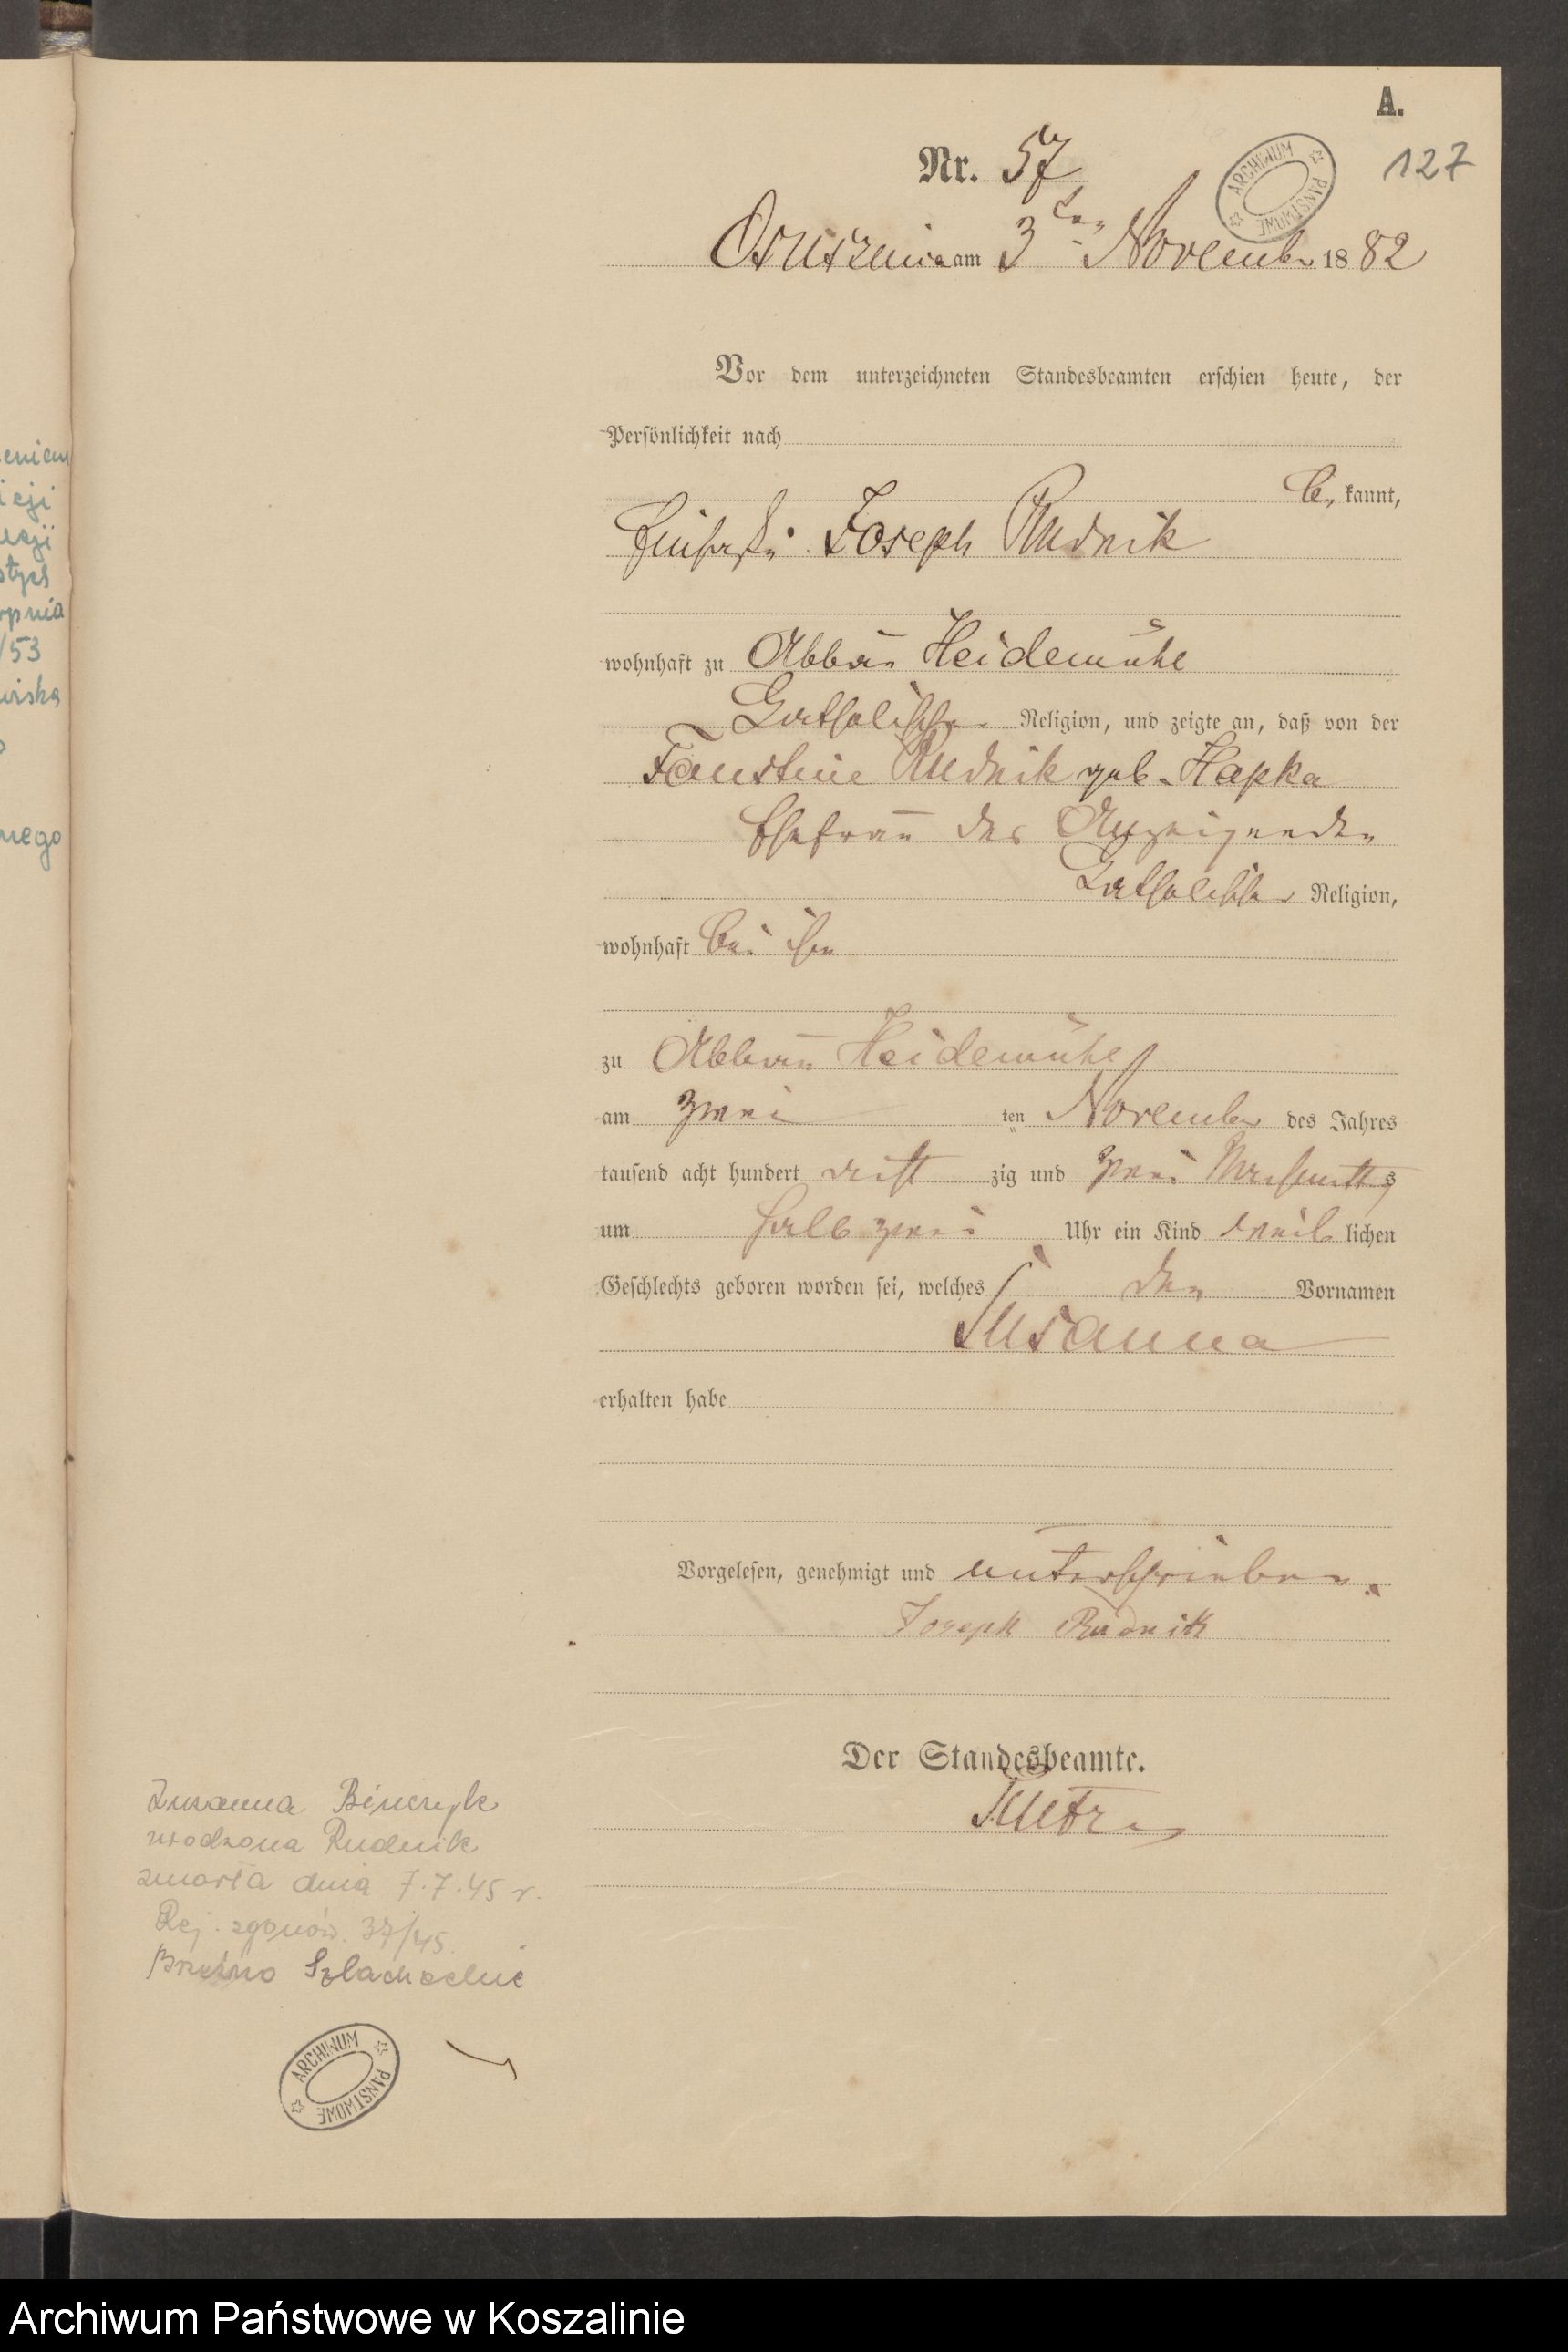 A.
127
Nr. 57
ARCHIWUM PAŃSTWOWE
am 3ten November 1882
Vor dem unterzeichneten Standesbeamten erschien heute, der
Persönlichkeit nach
be kannt,
Joseph Rudnik
wohnhaft zu Abbau Heidemühl
katholischer Religion, und zeigte an, daß von der
Faustine Rudnik geb. Hapka
Ehefrau des Anzeigenden
katholischer Religion,
wohnhaft bei ihm
zu Abbau Heidemühl
am zwei ten November des Jahres
tausend acht hundert acht zig und zwei Nachmittags
um halb zwei Uhr ein Kind weib lichen
Geschlechts geboren worden sei, welches den Vornamen
Susanna
erhalten habe
Vorgelesen, genehmigt und unterschrieben.
Joseph Rudnik
Der Standesbeamte.
Zuzanna Binczyk
urodzona Rudnik
zmarła dnia 7.7.45 r.
Rej. zgonów. 37/45.
Brzeźno Szlacheckie
ARCHIWUM PAŃSTWOWE
Archiwum Państwowe w Koszalinie